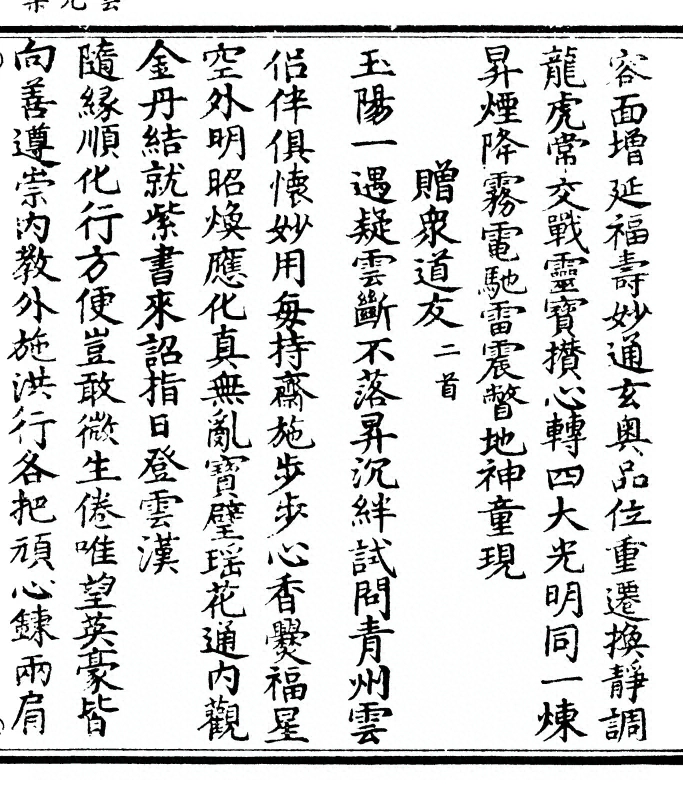 容面增延福壽妙通玄奥品位重遷換靜調
龍虎常交戰靈寶攅心轉四大光明同一煉
昇煙降霧電馳雷震瞥地神童現
贈衆道友二首
玉陽一遇疑雲斷不落昇沉絆試問青州雲
侣伴俱懐妙用每持齋施步步心香爨福星
空外明昭煥應化真無亂寶璧瑶花通内觀
金丹結就紫書來詔指日登雲漢
隨緣順化行方便豈敢微生倦唯望英豪皆
向善遵崇内教外施洪行各把頑心鍊兩肩